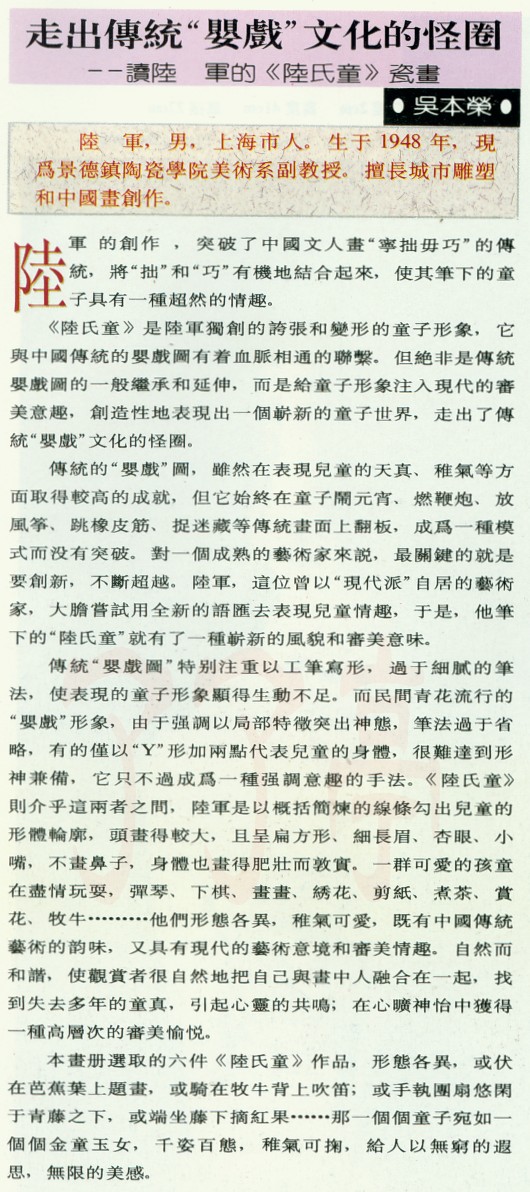 走出傳統“嬰戲”文化的怪圈
--讀陸　軍的《陸氏童》瓷畫
●吳本榮●
陸　軍，男，上海市人。生于1948年，現
爲景德鎮陶瓷學院美術系副教授。擅長城市雕塑
和中國畫創作。
陸軍的創作，突破了中國文人畫“寧拙毋巧”的傳
統，將“拙”和“巧”有機地結合起來，使其筆下的童
子具有一種超然的情趣。
《陸氏童》是陸軍獨創的誇張和變形的童子形象，它
與中國傳統的嬰戲圖有着血脈相通的聯繫。但絕非是傳統
嬰戲圖的一般繼承和延伸，而是給童子形象注入現代的審
美意趣，創造性地表現出一個嶄新的童子世界，走出了傳
統“嬰戲”文化的怪圈。
傳統的“嬰戲”圖，雖然在表現兒童的天真、稚氣等方
面取得較高的成就，但它始終在童子鬧元宵、燃鞭炮、放
風箏、跳橡皮筋、捉迷藏等傳統畫面上翻板，成爲一種模
式而没有突破。對一個成熟的藝術家來説，最關鍵的就是
要創新，不斷超越。陸軍，這位曾以“現代派”自居的藝術
家，大膽嘗試用全新的語匯去表現兒童情趣，于是，他筆
下的“陸氏童”就有了一種嶄新的風貌和審美意味。
傳統“嬰戲圖”特别注重以工筆寫形，過于細膩的筆
法，使表現的童子形象顯得生動不足。而民間青花流行的
“嬰戲”形象，由于强調以局部特徵突出神態，筆法過于省
略，有的僅以“Y”形加兩點代表兒童的身體，很難達到形
神兼備，它只不過成爲一種强調意趣的手法。《陸氏童》
則介乎這兩者之間，陸軍是以概括簡煉的線條勾出兒童的
形體輪廓，頭畫得較大，且呈扁方形、細長眉、杏眼、小
嘴，不畫鼻子，身體也畫得肥壯而敦實。一群可愛的孩童
在盡情玩耍，彈琴、下棋、畫畫、綉花、剪紙、煮茶、賞
花、牧牛………他們形態各異，稚氣可愛，既有中國傳統
藝術的韵味，又具有現代的藝術意境和審美情趣。自然而
和諧，使觀賞者很自然地把自己與畫中人融合在一起，找
到失去多年的童真，引起心靈的共鳴；在心曠神怡中獲得
一種高層次的審美愉悦。
本畫册選取的六件《陸氏童》作品，形態各異，或伏
在芭蕉葉上題畫，或騎在牧牛背上吹笛；或手執團扇悠閑
于青藤之下，或端坐藤下摘紅果……那一個個童子宛如一
個個金童玉女，千姿百態，稚氣可掬，給人以無窮的遐
思，無限的美感。